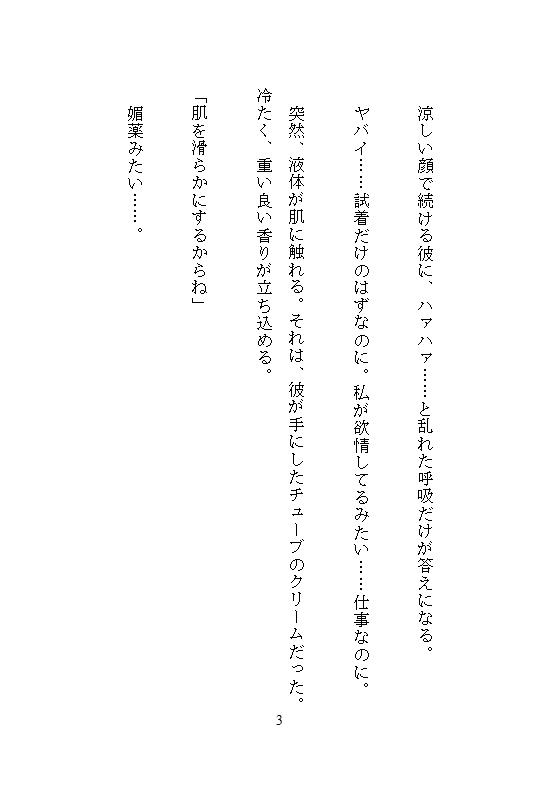 涼しい顔で続ける彼に、ハァハァ……と乱れた呼吸だけが答えになる。
ヤバイ……試着だけのはずなのに。私が欲情してるみたい……仕事なのに。
突然、液体が肌に触れる。それは、彼が手にしたチューブのクリームだった。
冷たく、重い良い香りが立ち込める。
「肌を滑らかにするからね」
媚薬みたい……。
3